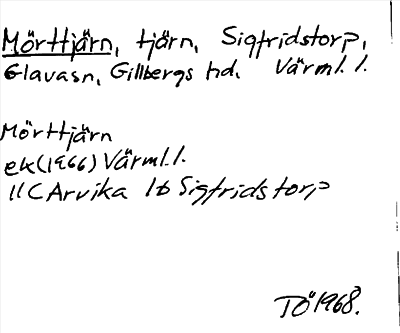 Mörttjärn, tjärn, Sigfridstorp,
Glavasn, Gillbergs hd. Värml. l.
Mörttjärn
ek(1966) Värml. l.
11C Arvika 1b Sigfridstorp
TÖ 1968.